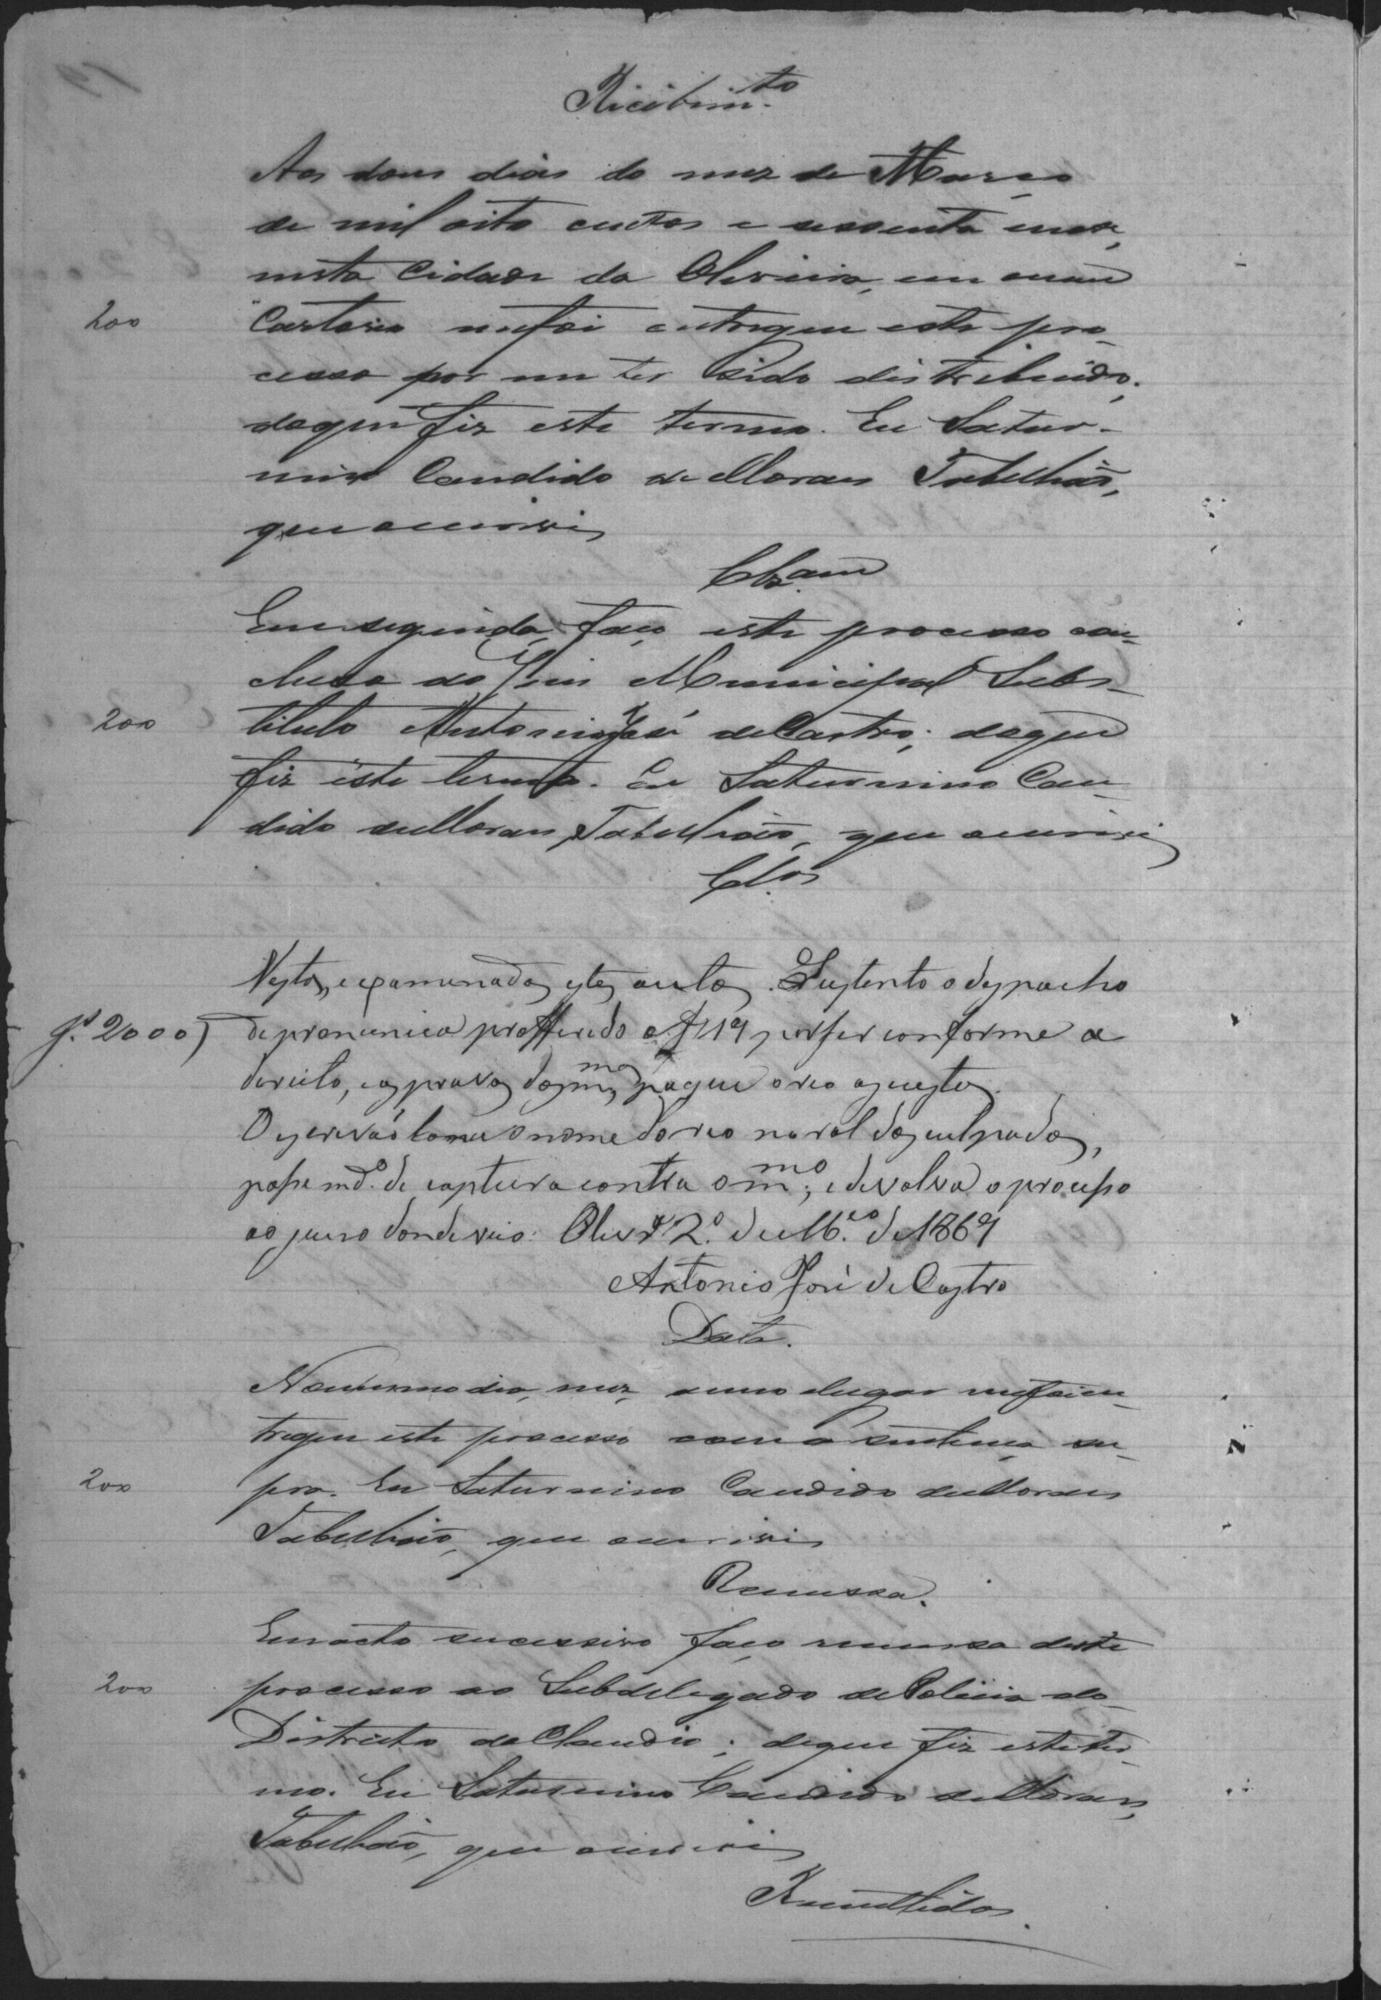 Recebim.to
Aos dous dias do mez de Março
de mil oito centos e sessenta enove,
nesta Cidade da Oliveira, em meu
200
Cartorio mefoi entregue este pro-
cesso por me ter sido distribuido,
doque fiz este termo. Eu Satur-
nino Candido de Moraes Tabellião,
que escrevi
Clzam
Emseguida faço este processo con-
cluso ao Juis Municipal Subs-
200
tituto Antonio José de Castro; doque
fiz este termo. Eu Saturnino Can-
dido de Moraes, Tabellião, que escrevi
Cl.os
Vistos, e examinados estes autos. Sustento o despacho
g.s 2000)
de pronuncia profferido a f 19 por ser conforme a
direito, e as provas dos m.mos, pague o reo as custas.
O escrivão lance o nome do reo no rol dos culpados,
passe md.o de captura contra o m.mo; e devolva o processo
ao juiso donde veio. Olivr.a 2.º de M.ço de 1869
Antonio José de Castro
Data.
No mesmo dia, mez, anno elugar mefoi en-
tregue este processo com a sentença su-
200
pra. Eu Saturnino Candido de Moraes
Tabellião, que escrevi
Remessa.
Em acto sucessivo faço remessa deste
200
processo ao Subdelegado de Policia do
Districto do Claudio; doque fiz este ter-
mo. Eu Saturnino Candido de Moraes,
Tabellião, que escrevi
Remettidos.